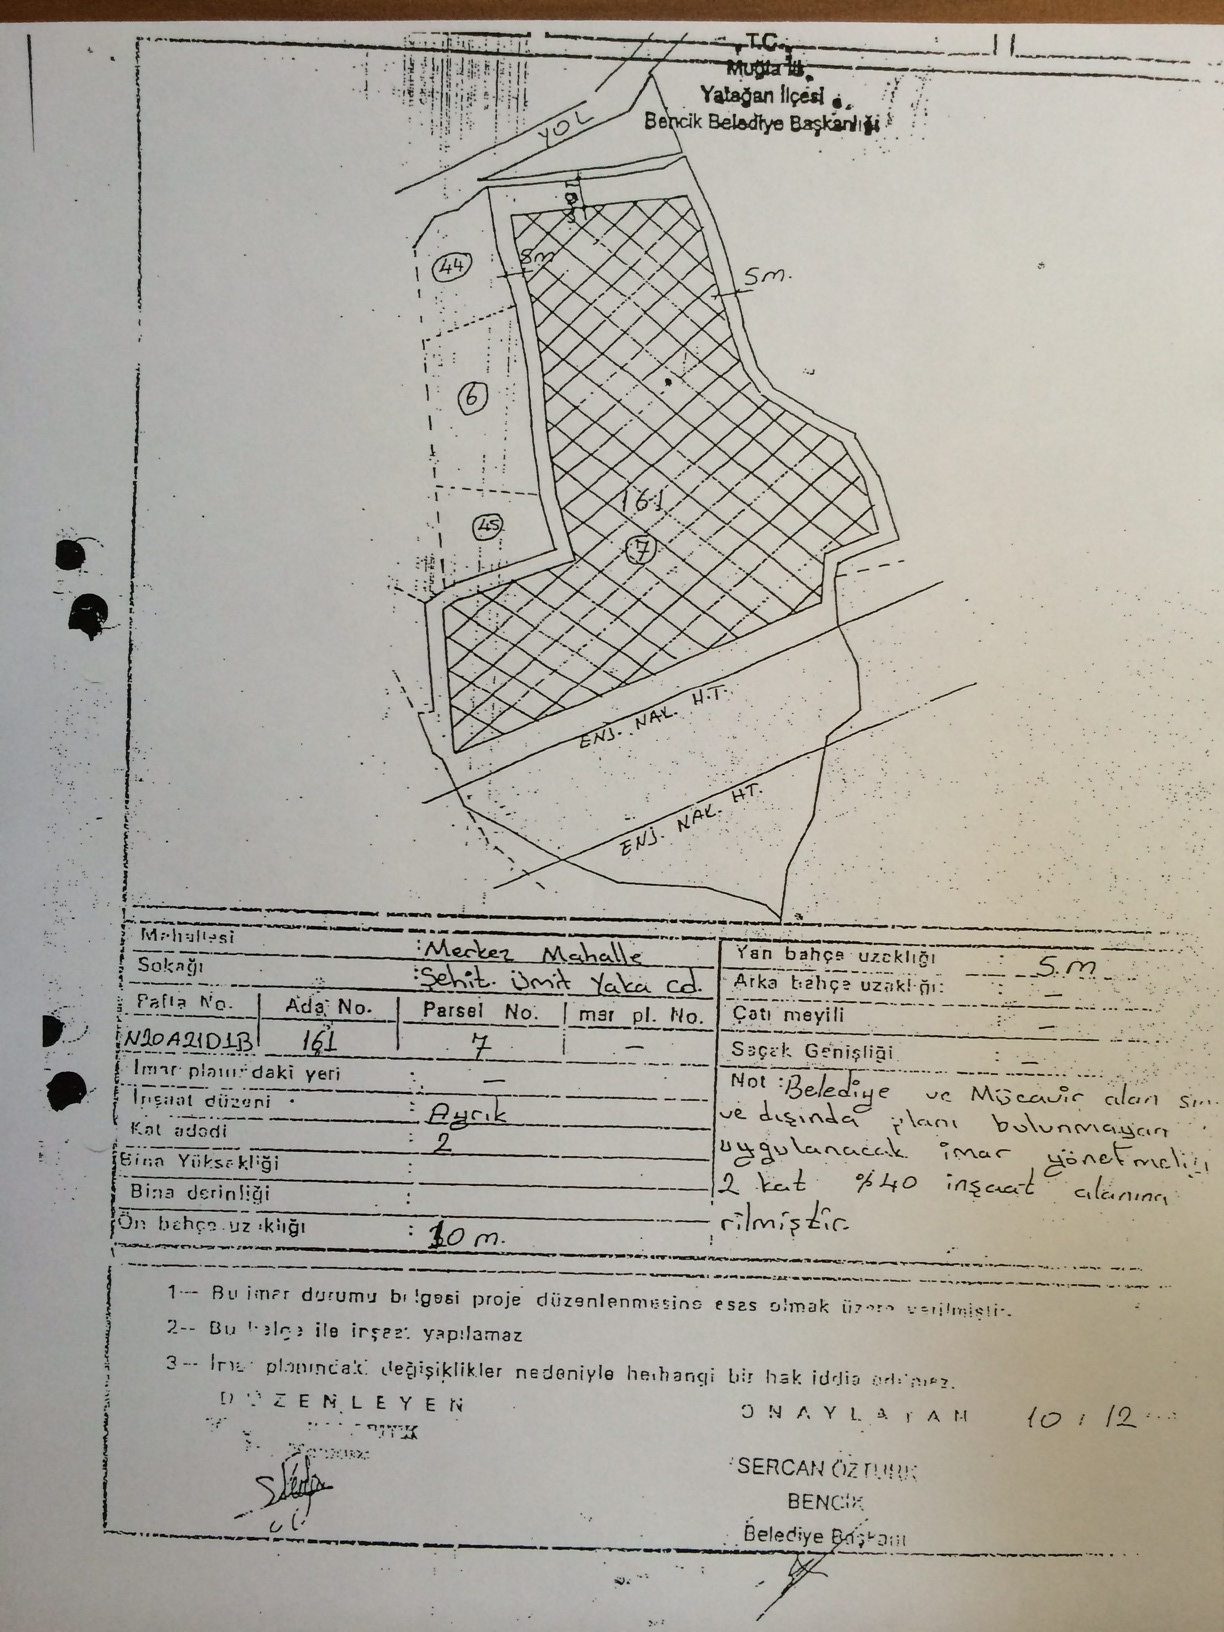 T.C.
Muğla İli
Yatağan İlçesi
Bencik Belediye Başkanlığı
YOL
10m
44
8m
5m.
6
161
45
7
ENJ. NAK. H.T.
ENJ. NAK. HT.
Mahallesi :Merkez Mahalle
Sokağı :Şehit. Ümit Yaka cd.
Pafta No. Ada No. Parsel No. İmar pl. No.
N20A21D1B 161 7 —
İmar planındaki yeri : —
İnşaat düzeni : Ayrık
Kat adedi : 2
Bina Yüksekliği :
Bina derinliği :
Ön bahçe uzaklığı : 10 m.
Yan bahçe uzaklığı : 5 m
Arka bahçe uzaklığı: : —
Çatı meyili : —
Saçak Genişliği : —
Not : Belediye ve Mücavir alan
ve dışında planı bulunmayan
uygulanacak imar yönetmeliği
2 kat %40 inşaat alanına
rilmiştir.
1-- Bu imar durumu belgesi proje düzenlenmesine esas olmak üzere verilmiştir.
2-- Bu belge ile inşaat yapılamaz
3-- İmar planındaki değişiklikler nedeniyle herhangi bir hak iddia edilmez.
DÜZENLEYEN
ONAYLAYAN 10 / 12
SERCAN ÖZTÜRK
BENCİK
Belediye Başkanı